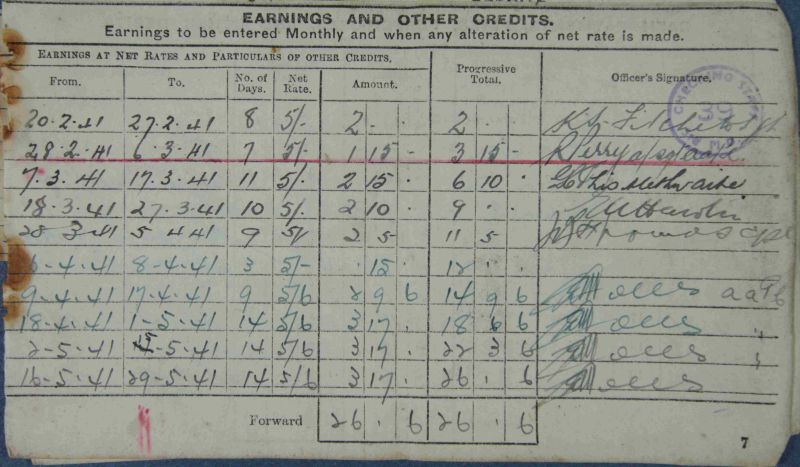 EARNINGS AND OTHER CREDITS.
Earnings to be entered Monthly and when any alteration of net rate is made.
EARNINGS AT NET RATES AND PARTICULARS OF OTHER CREDITS.
From. To. No. of Days. Net Rate. Amount. Progressive Total. Officer's Signature.
20.2.41 27.2.41 8 5/- 2 . . 2 . .
28.2.41 6.3.41 7 5/- 1 15 - 3 15 -
7.3.41 17.3.41 11 5/- 2 15 . 6 10 .
18.3.41 27.3.41 10 5/- 2 10 . 9 . .
28 3 41 5 4 41 9 5/- 2 5 11 5
6-4-41 8-4-41 3 5/- . 15 . 12 . .
9-4-41 17-4-41 9 5/6 2 9 6 14 9 6
18-4-41 1-5-41 14 5/6 3 17 . 18 6 6
2-5-41 -5-41 14 5/6 3 17 . 22 3 6
16-5-41 29-5-41 14 5/6 3 17 . 26 . 6
Forward 26 . 6 26 . 6
7